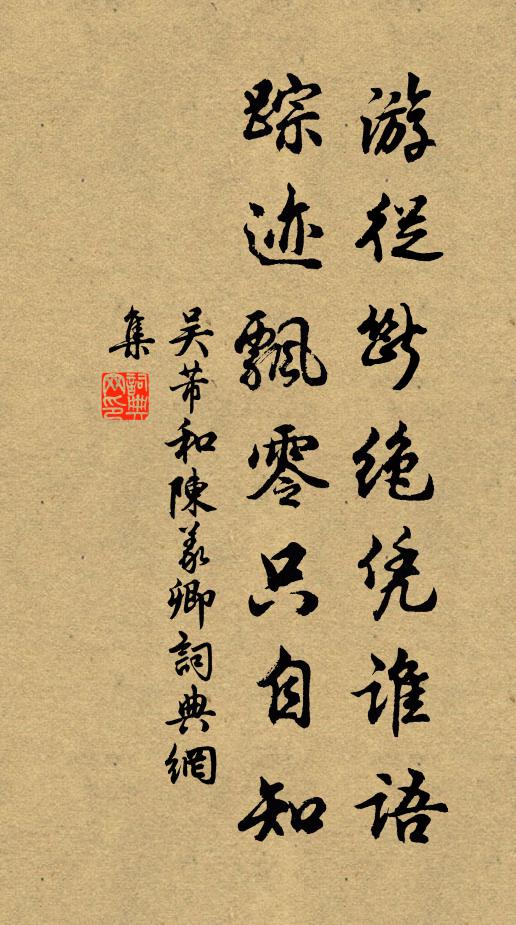 游從斷絶凭誰語
踪迹飄零只自知
吴芾和陳羲卿詞典網
集
詞典
网印